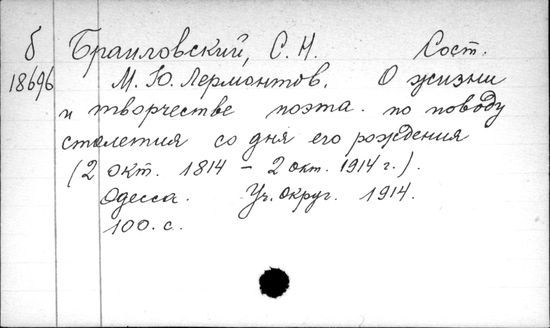 б Браиловский, С. Н. Сост.
18696 М. Ю. Лермонтов. О жизни
и творчестве поэта. по поводу
столетия со дня его рождения
(2 окт. 1814 – 2 окт. 1914 г.).
Одесса. Уч. округ. 1914.
100. с.